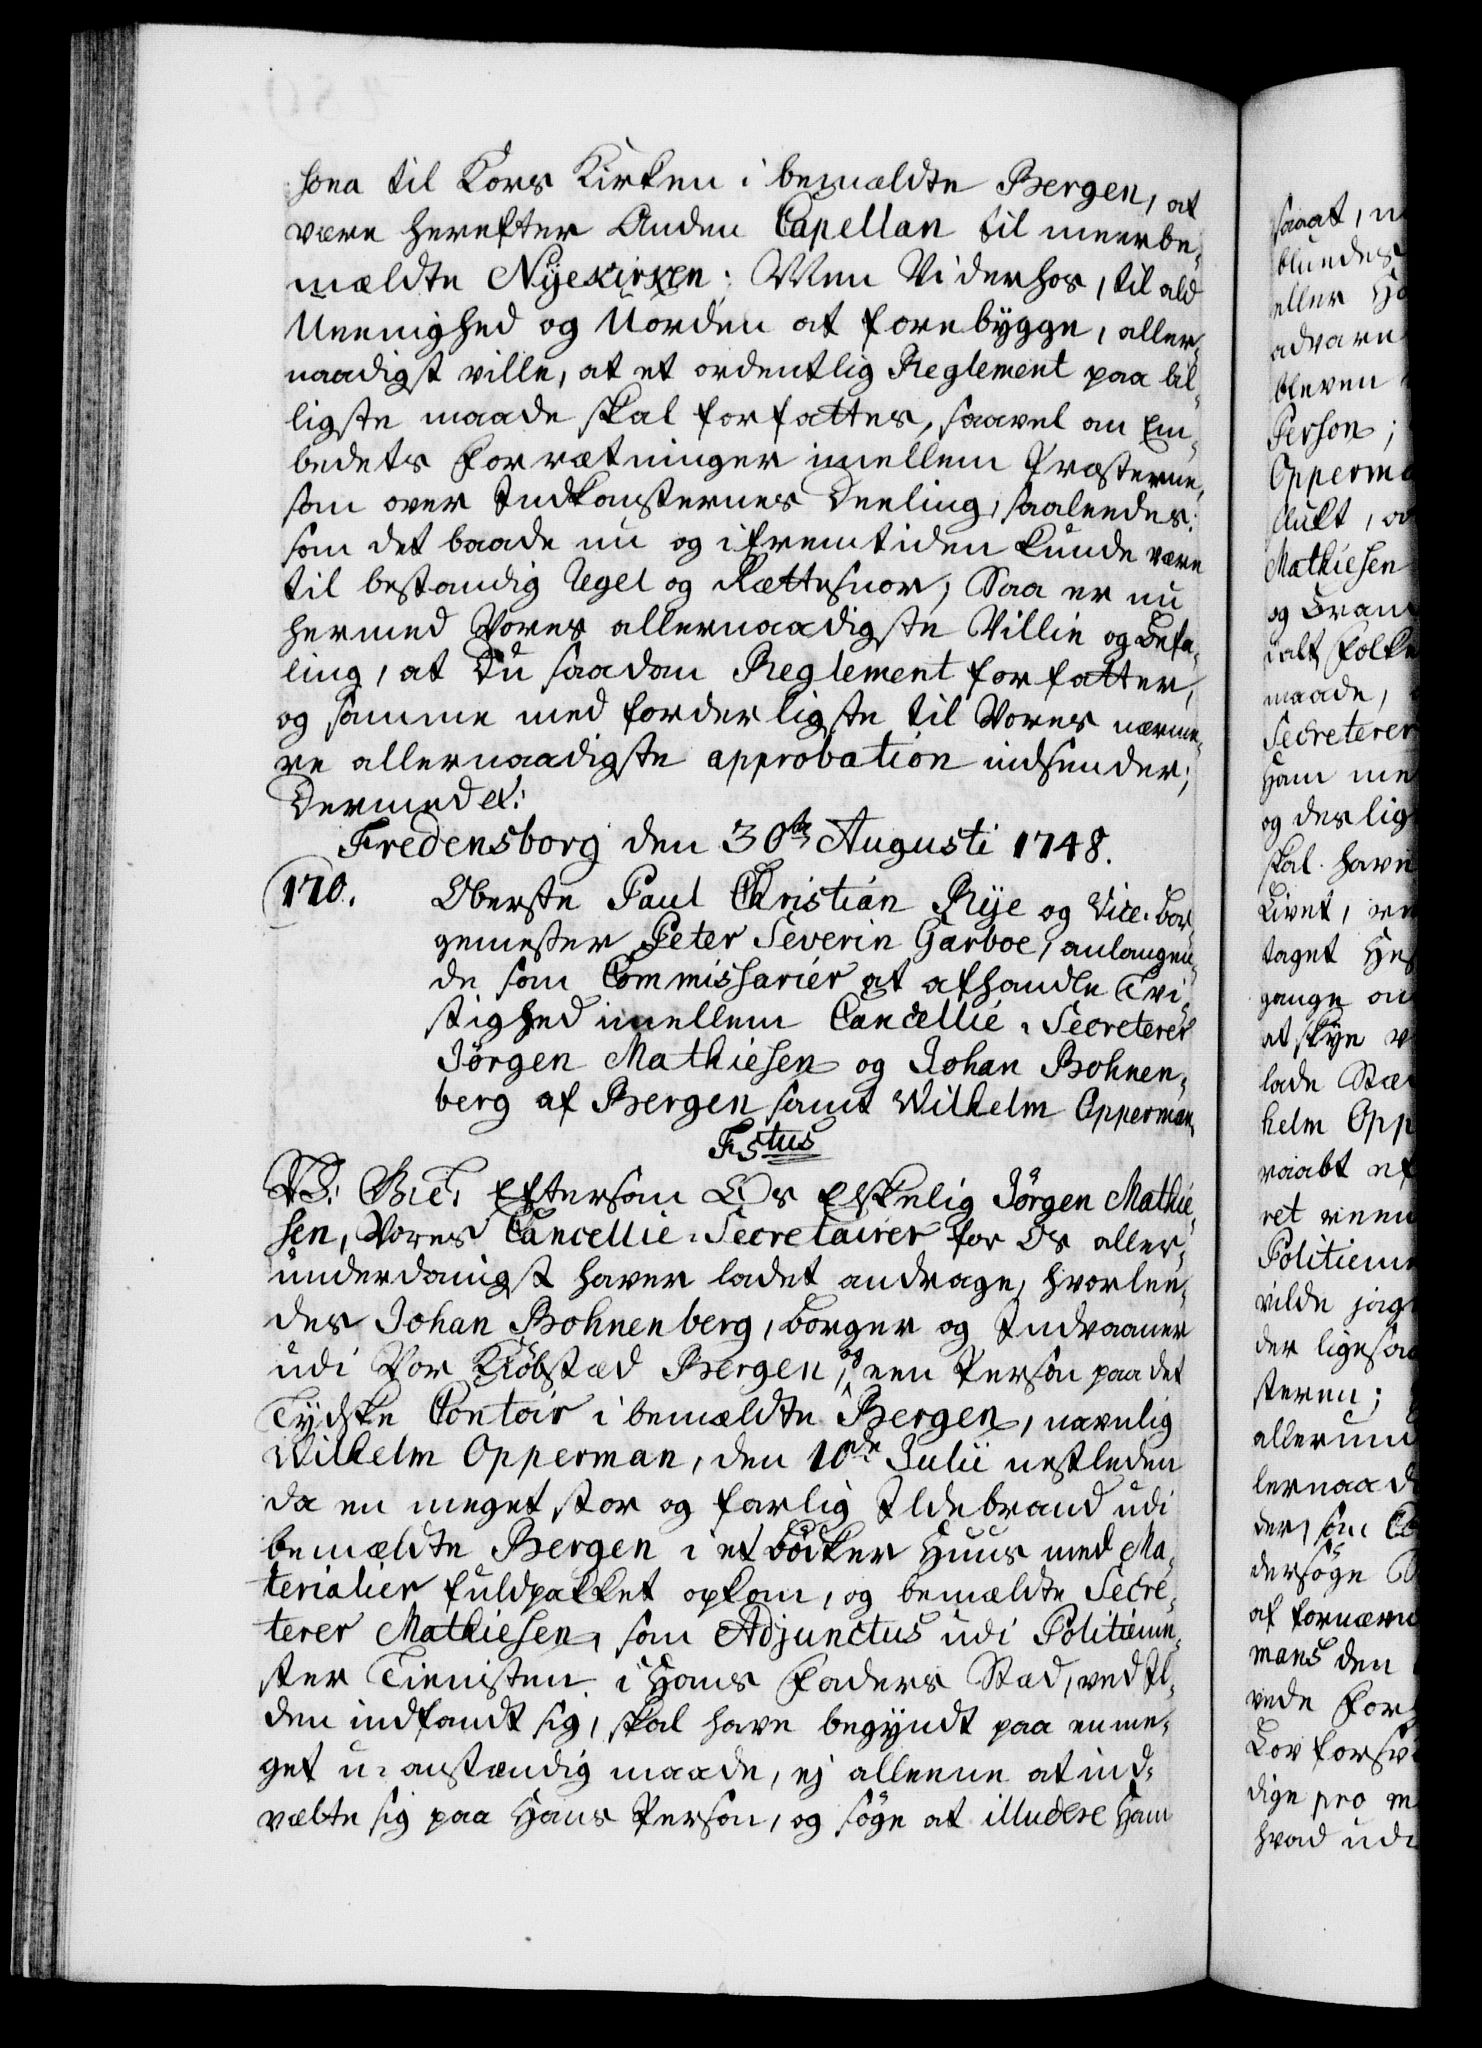 sona til Kors Kirken i bemældte Bergen, at
være herefter Anden Capellan til meerbe-
mældte Nyekirken; Men Vi derhos, til ald
Ueenighed og Uorden at forebygge, aller-
naadigst ville, at et ordentlig Reglement paa bil-
ligste maade skal forfattes, saavel om Em-
bedets Forrætninger imellem Præsterne,
som over Indkomsternes Deeling, saaleedes:
som det baade nu og i fremtiden kunde være
til bestandig Regel og Rættesnor; Saa er nu
hermed Vores allernaadigste Villie og Befa-
ling, at Du saadan Reglement forfatter,
og samme med forderligste til Vores nærme-
re allernaadigste approbation indsender;
Dermed etc:
Fredensborg den 30te Augusti 1748.
170. Oberste Paul Christian Rye og Vice-Bor-
gemester Peter Severin Garboe, anlangen-
de som Commissarier at afhandle Tvi-
stighed imellem Cancellie-Secreterer
Jörgen Mathiesen og Johan Bohnen-
berg af Bergen samt Wilhelm Opperman
F5tus
V: G: T: Eftersom Os Elskelig Jörgen Mathie-
sen, Vores Cancellie-Secretairer for Os aller-
underdanigst haver ladet andrage, hvorlee-
des Johan Bohnenberg, borger og Indvaaner
udi Vor Kiöbstæd Bergen, og een Person paa det
Tydske Contoir i bemældte Bergen, navnlig
Wilhelm Opperman, den 10de Julii nestleden
da en meget stor og farlig Ildebrand udi
bemældte Bergen i et Böcker Huus med Ma-
terialier fuldpakket opkom, og bemældte Secre-
terer Mathiesen, som Adjunctus udi Politieme-
ster Tienisten i Hans Faders Stæd, ved Il-
den indfandt sig, skal have begyndt paa en me-
get u-anstændig maade, ej alleene at ind-
væbte sig paa Hans Person, og söge at illudere Ham
saat, 
eller 
advare
bleven
Person;
Opperma
Mathiesen
maade,
Secreterer
Ham me
og deslig
skal have
Livet,
taget
gange
lade
helm Opp
raabt
ret
Politieme
vilde jag
der ligesaa
steren;
lernaad
der, som
dersöge
af fornævn
mans den
vede For
Lov forsv
dige pro
hvad udi